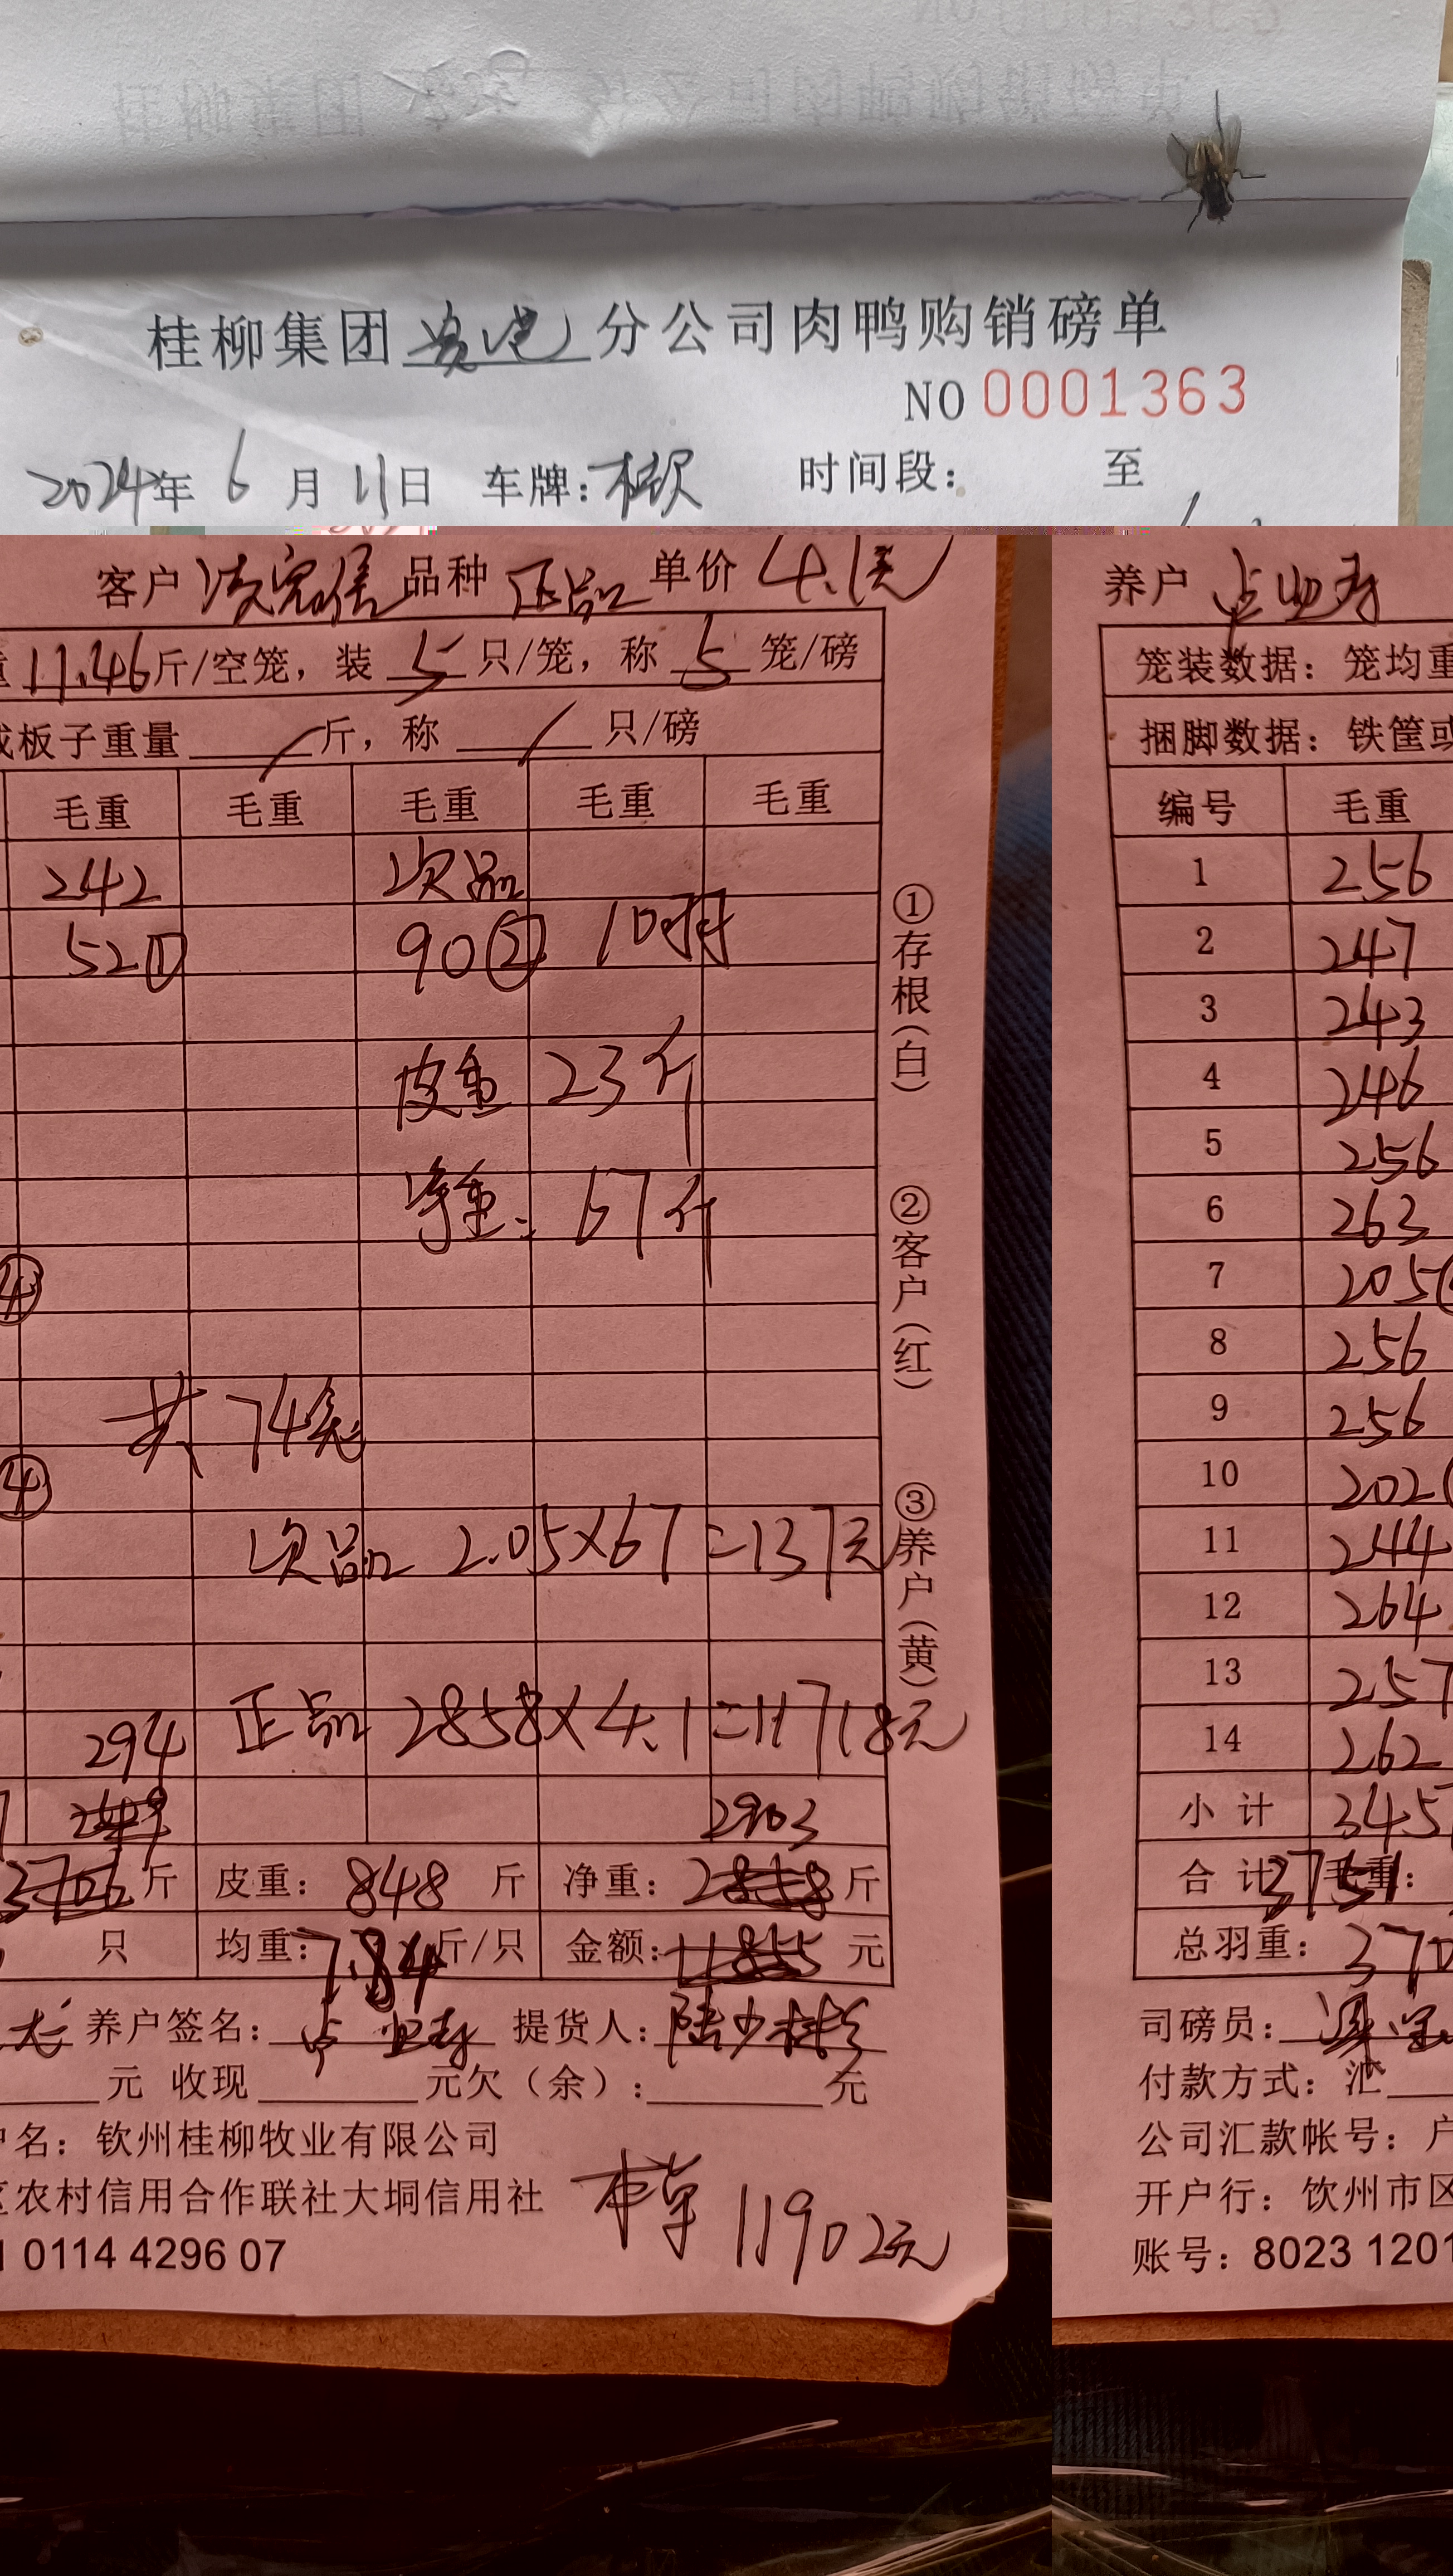 桂柳集团 贵港 分公司肉鸭购销磅单
NO 0001363
2024年 6 月 11日 车牌: 时间段: 至
客户 品种 正品 单价 4.1元
11.46斤/空笼，装 5 只/笼，称 5 笼/磅
板子重量 斤，称 只/磅
毛重 毛重 毛重 毛重 毛重
242 次品
52① 90② 10只
皮重 23斤
净重: 67斤
④
共 74笼
④
次品 2.05×67=137元
正品 2858×4.1=11718元
294
2903
3706斤 皮重: 848 斤 净重: 2858斤
只 均重: 7.84斤/只 金额: 11855 元
养户签名: 提货人:
元 收现 元欠（余）: 元
户名: 钦州桂柳牧业有限公司
区农村信用合作联社大垌信用社
本单 11902元
1 0114 4296 07
①存根（白）
②客户（红）
③养户（黄）
养户
笼装数据: 笼均重
捆脚数据: 铁筐或
编号 毛重
1 256
2 247
3 243
4 246
5 256
6 263
7 205
8 256
9 256
10 202
11 244
12 264
13 257
14 262
小 计 345
合 计 3751 毛重:
总羽重: 370
司磅员:
付款方式: 汇
公司汇款帐号: 户
开户行: 钦州市区
账号: 8023 1201